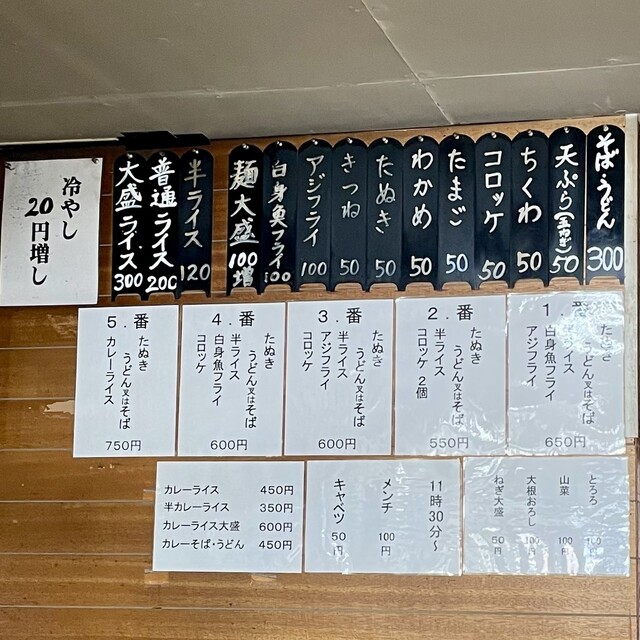 そば・うどん 300
天ぷら(玉ねぎ) 50
ちくわ 50
コロッケ 50
たまご 50
わかめ 50
たぬき 50
きつね 50
アジフライ 100
白身魚フライ
麺大盛 100増
半ライス 120
普通ライス 200
大盛ライス 300
冷やし
20円増し
1.番
たぬき
うどん又はそば
半ライス
白身魚フライ
アジフライ
650円
2.番
たぬき
うどん又はそば
半ライス
コロッケ 2個
550円
3.番
たぬき
うどん又はそば
半ライス
アジフライ
コロッケ
600円
4.番
たぬき
うどん又はそば
半ライス
白身魚フライ
コロッケ
600円
5.番
たぬき
うどん又はそば
カレーライス
750円
とろろ 100円
山菜 100円
大根おろし 100円
ねぎ大盛 50円
11時30分~
メンチ 100円
キャベツ 50円
カレーライス 450円
半カレーライス 350円
カレーライス大盛 600円
カレーそば・うどん 450円